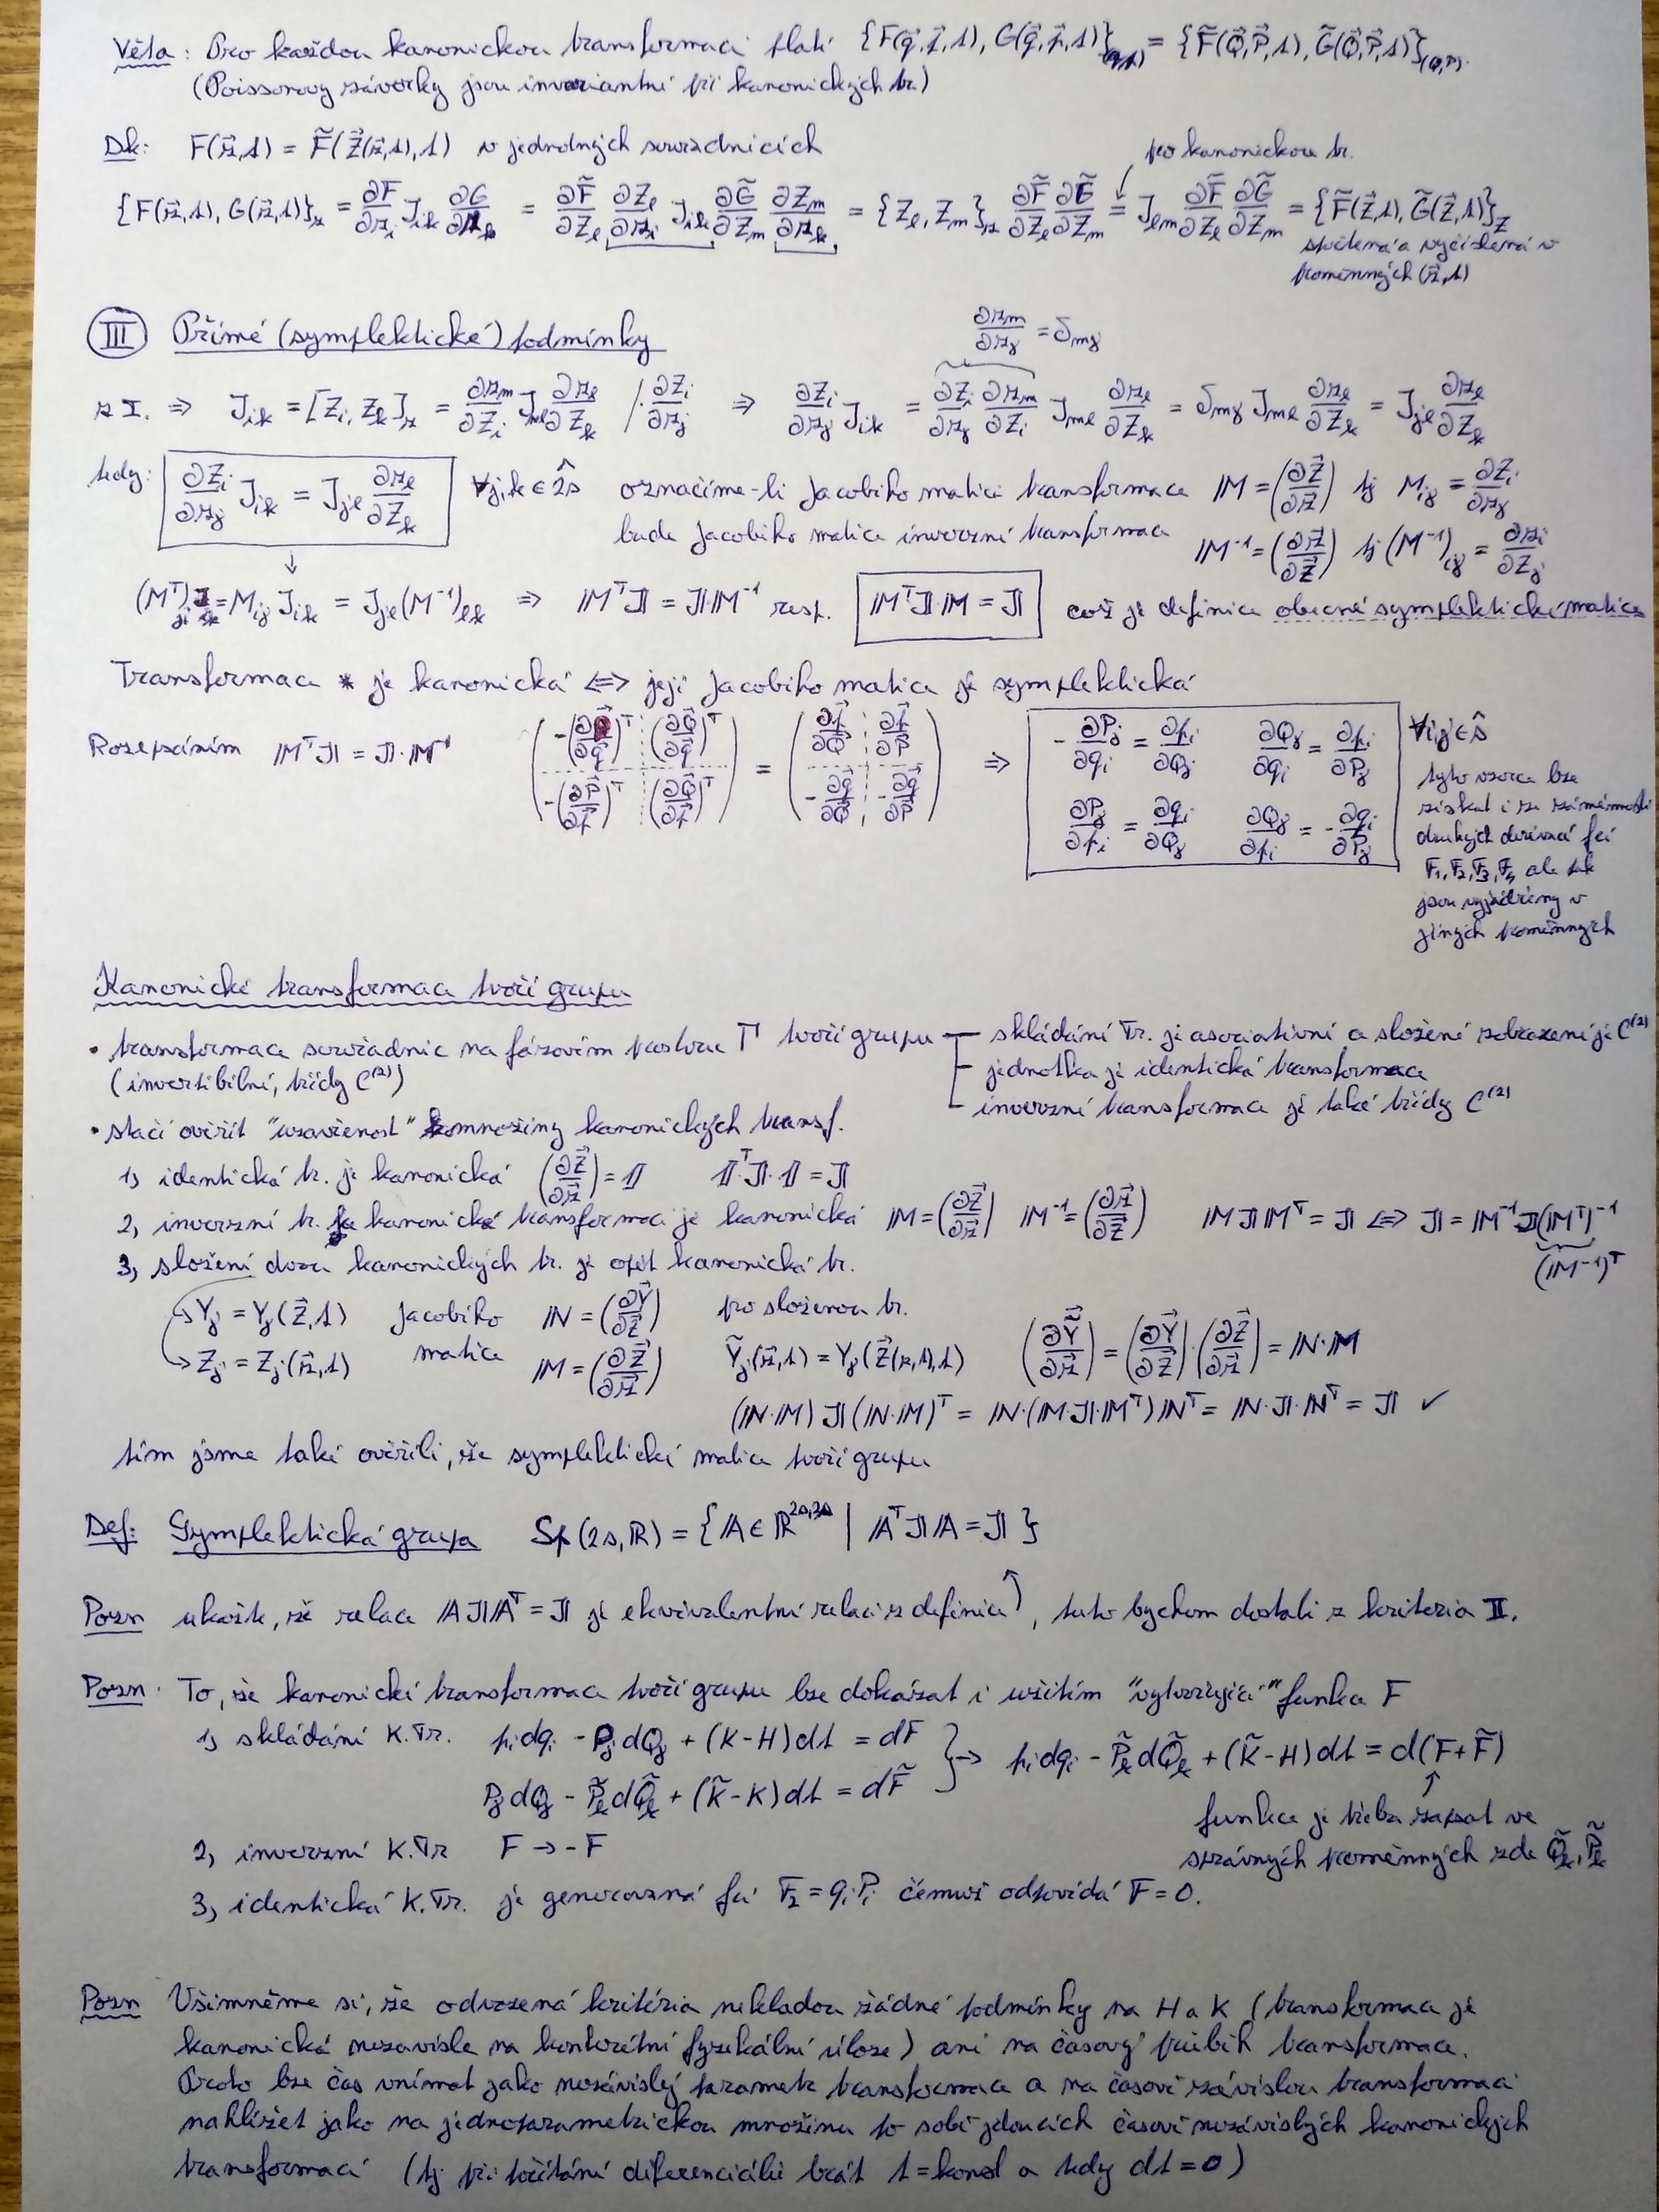 Věta: Pro každou kanonickou transformaci platí {F(q⃗,p⃗,t), G(q⃗,p⃗,t)}_(q,p) = {F̃(Q⃗,P⃗,t), G̃(Q⃗,P⃗,t)}_(Q,P).
(Poissonovy závorky jsou invariantní při kanonických tr.)
Dk: F(z⃗,t) = F̃(Z⃗(z⃗,t),t) v jednotných souřadnicích
pro kanonickou tr.
{F(z⃗,t), G(z⃗,t)}_z = ∂F/∂z_i J_ik ∂G/∂z_k = ∂F̃/∂Z_l ∂Z_l/∂z_i J_ik ∂G̃/∂Z_m ∂Z_m/∂z_k = {Z_l, Z_m}_z ∂F̃/∂Z_l ∂G̃/∂Z_m = J_lm ∂F̃/∂Z_l ∂G̃/∂Z_m = {F̃(Z⃗,t), G̃(Z⃗,t)}_Z
spočtená a vyčíslená v
proměnných (z⃗,t)
III Přímé (symplektické) podmínky
∂z_m/∂z_j = δ_mj
z I. ⇒ J_ik = [Z_i, Z_k]_z = ∂z_m/∂Z_i J_ml ∂z_l/∂Z_k /· ∂Z_i/∂z_j ⇒ ∂Z_i/∂z_j J_ik = ∂Z_i/∂z_j ∂z_m/∂Z_i J_ml ∂z_l/∂Z_k = δ_mj J_ml ∂z_l/∂Z_k = J_jl ∂z_l/∂Z_k
tedy: ∂Z_i/∂z_j J_ik = J_jl ∂z_l/∂Z_k ∀j,k ∈ 2ŝ označíme-li Jacobiho matici transformace 𝕄 = (∂Z⃗/∂z⃗) tj M_ij = ∂Z_i/∂z_j
bude Jacobiho matice inverzní transformace 𝕄⁻¹ = (∂z⃗/∂Z⃗) tj (M⁻¹)_ij = ∂z_i/∂Z_j
(Mᵀ)_ji J_ik = M_ij J_ik = J_jl (M⁻¹)_lk ⇒ 𝕄ᵀ𝕁 = 𝕁·𝕄⁻¹ resp. 𝕄ᵀ𝕁𝕄 = 𝕁 což je definice obecné symplektické matice
Transformace * je kanonická ⇔ její Jacobiho matice je symplektická
Rozepsáním 𝕄ᵀ𝕁 = 𝕁·𝕄⁻¹ ( -(∂P⃗/∂q⃗)ᵀ (∂Q⃗/∂q⃗)ᵀ ; -(∂P⃗/∂p⃗)ᵀ (∂Q⃗/∂p⃗)ᵀ ) = ( ∂p⃗/∂Q⃗ ∂p⃗/∂P⃗ ; -∂q⃗/∂Q⃗ -∂q⃗/∂P⃗ ) ⇒ -∂P_j/∂q_i = ∂p_i/∂Q_j ∂Q_j/∂q_i = ∂p_i/∂P_j ∀i,j∈ŝ
∂P_j/∂p_i = ∂q_i/∂Q_j ∂Q_j/∂p_i = -∂q_i/∂P_j
tyto vzorce lze
získat i ze záměnnosti
druhých derivací fcí
F₁,F₂,F₃,F₄ ale pak
jsou vyjádřeny v
jiných proměnných
Kanonické transformace tvoří grupu
• transformace souřadnic na fázovém prostoru Γ tvoří grupu – skládání Tr. je asociativní a složené zobrazení je C⁽²⁾
(invertibilní, třídy C⁽²⁾) – jednotka je identická transformace
– inverzní transformace je také třídy C⁽²⁾
• stačí ověřit "uzavřenost" množiny kanonických transf.
1) identická tr. je kanonická (∂Z⃗/∂z⃗) = 𝟙 𝟙ᵀ·𝕁·𝟙 = 𝕁
2) inverzní tr. kanonické transformaci je kanonická 𝕄 = (∂Z⃗/∂z⃗) 𝕄⁻¹ = (∂z⃗/∂Z⃗) 𝕄𝕁𝕄ᵀ = 𝕁 ⇔ 𝕁 = 𝕄⁻¹𝕁(𝕄ᵀ)⁻¹
(𝕄⁻¹)ᵀ
3) složení dvou kanonických tr. je opět kanonická tr.
Y_j = Y_j(Z⃗,t) Jacobiho ℕ = (∂Y⃗/∂Z⃗) pro složenou tr.
Z_j = Z_j(z⃗,t) matice 𝕄 = (∂Z⃗/∂z⃗) Ỹ_j(z⃗,t) = Y_j(Z⃗(z,t),t) (∂Ỹ⃗/∂z⃗) = (∂Y⃗/∂Z⃗)·(∂Z⃗/∂z⃗) = ℕ·𝕄
(ℕ·𝕄) 𝕁 (ℕ·𝕄)ᵀ = ℕ·(𝕄·𝕁·𝕄ᵀ)ℕᵀ = ℕ·𝕁·ℕᵀ = 𝕁 ✓
tím jsme také ověřili, že symplektické matice tvoří grupu
Def: Symplektická grupa Sp(2s,ℝ) = {𝔸 ∈ ℝ^{2s,2s} | 𝔸ᵀ𝕁𝔸 = 𝕁}
Pozn ukažte, že relace 𝔸𝕁𝔸ᵀ = 𝕁 je ekvivalentní relaci z definice, tuto bychom dostali z kritéria II.
Pozn. To, že kanonické transformace tvoří grupu lze dokázat i užitím "vytvořující" funkce F
1) skládání K.Tr. p_i dq_i - P_j dQ_j + (K-H)dt = dF
P_j dQ_j - P̃_k dQ̃_k + (K̃-K)dt = dF̃ } → p_i dq_i - P̃_k dQ̃_k + (K̃-H)dt = d(F+F̃)
funkce je třeba zapsat ve
správných proměnných zde Q̃_k, P̃_k
2) inverzní K.Tr F → -F
3) identická K.Tr. je generovaná fcí F₂ = q_i P_i čemuž odpovídá F = 0.
Pozn Všimněme si, že odvozená kritéria nekladou žádné podmínky na H a K (transformace je
kanonická nezávisle na konkrétní fyzikální úloze) ani na časový průběh transformace.
Proto lze čas vnímat jako nezávislý parametr transformace a na časově závislou transformaci
nahlížet jako na jednoparametrickou množinu po sobě jdoucích časově nezávislých kanonických
transformací (tj při počítání diferenciálů brát t=konst a tedy dt=0)